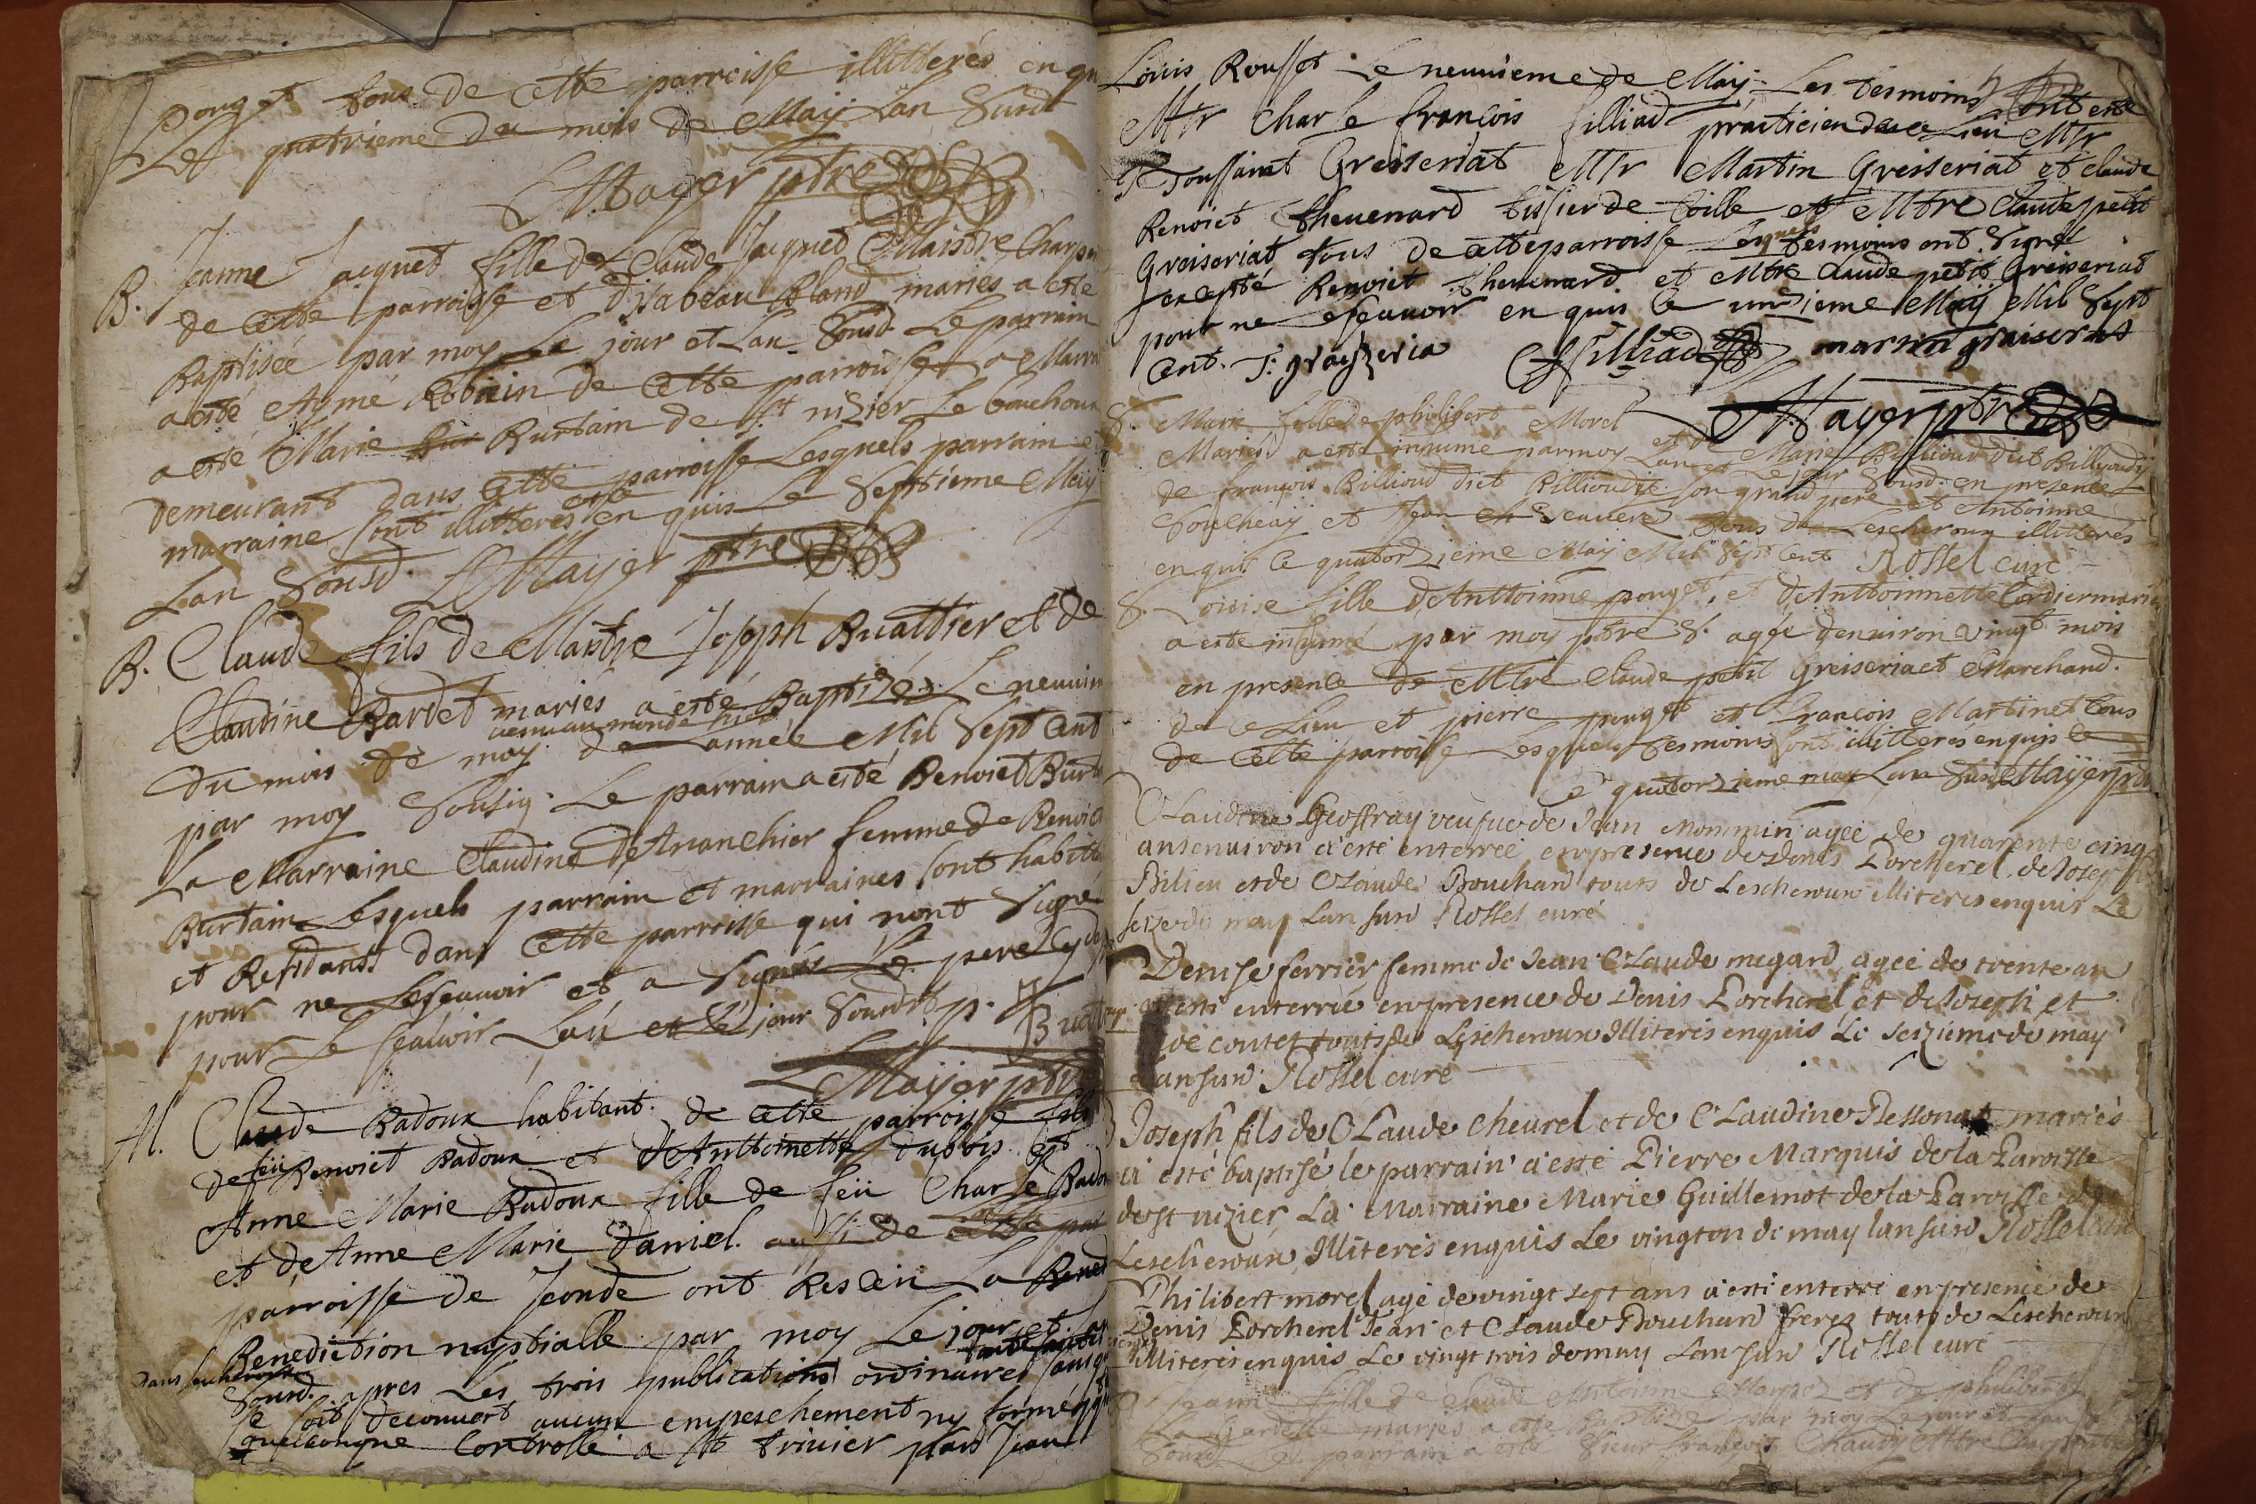 pouget tous de cette parroisse illitterés enquis
Le quatrieme du mois de May Lan Susdt
Mayer ptre
B. Jeanne Jacquet fille de Claude Jacquet Maistre Charp
de cette parroisse et d'Isabeau Bland mariés a esté
Baptisée par moy Le jour et Lan Sousd. Le parrain
a esté Aymé de cette parroisse La Marr
a esté Marie Burtain de St nizier Le bouchoux
demeurant dans cette parroisse Lesquels parrain et
marraine sont illitteres enquis Le Septieme May
Lan Sousd. Mayer ptre
B. Claude fils de Maistre Joseph Buattier et de
Claudine Bardet mariés a esté Baptizé Le neuvin
venu au monde hier
du mois de may de Lannée Mil Sept Cent
par moy Sousig. Le parrain a esté Benoict Burt
La Marraine Claudine femme de Benoict
Burtain Lesquels parrain et marraines sont habit
et Residants dans cette parroisse qui nont Signé
pour ne Lescauoir et a Signé Le pere
pour Le scauoir Lan et Le jour Sousdt p. J
Buat
Mayer ptre
M. Claude Badoux habitant de cette parroisse fils
de feu Benoict Badoux et d'Anttoinette dubois et
Anne Marie Badoux fille de feu Charle Badou
et de Anne Marie Daniel aussi de cette par
parroisse de ont Resceu La Bened
Benediction nuptialle par moy Le jour et
Sousd. apres Les trois publications ordinaires sans q
se soit decouvert aucun empeschement ny formé
quelconque Controllé a St trivier par Jean
Louis Rousset Le neuvieme de May. Les tesmoins sont esté
Mtr Charle françois filliad practicien de ce Lieu Mtr
Toussaint Greiseriat Mtr Martin Greiseriat et claude
Benoict theuenard tissier de toille et Mtre Claude petit
Greiseriat tous de cette parroisse Lesquels tesmoins ont Signé
excepté Benoict theuenard et Mtre Claude petit Greiseriat
pour ne Lescauoir enquis Ce unzieme May Mil Sept
Cent. T: grayzeria filliad martin graiseriat
Mayer ptre
S. Marie fille de philibert Morel et de Marie Billioud dict Billioudy
Mariés a esté inhumé par moy Lan et Le jour Sousd. en presence
de françois Billioud dict Billioudy son grand pere et Antoinne
et Jean tous de Lescheroux illitterés
enquis Ce quatorzieme May Mil Sept Cent Rossel curé
S. Loüise fille d'Anttoinne pouget, et d'Anttoinnette Cordier mariés
a esté inhumé par moy ptre S. agée denuiron vingt mois
en presence de Mtre Claude petit Greiseriaet Marchand.
de ce Lieu et pierre pouget et françois Martinet tous
de cette parroisse Lesquels tesmoins sont illitterés enquis ce
Ce quatorzieme may Lan Susd Mayer ptre
Claudine Geoffray veufue de Jean Mommin agée de quarente cinq
ans enuiron a esté enterrée en presence de Denis Porcherel, de Josep
Bilieu et de Claude Bouchard touts de Lescheroux illiteres enquis Le
seize du may Lan susd Rossel curé
Denise ferrier femme de Jean Claude megard agée de trente an
a esté enterrée en presence de Denis Porcherel et de Joseph et
touts de Lescheroux Illiterés enquis Le seizieme de may
Lan susd. Rossel curé
Joseph fils de Claude cheurel et de Claudine mariés
a esté baptisé le parrain a esté Pierre Marquis de la Paroisse
de st nizier La Marraine Marie Guillemot de la Paroisse de
Lescheroux Illiterés enquis Le vingt on de may lan susd Rossel curé
Philibert morel agé de vingt sept ans a esté enterré en presence de
Denis Porcherel Jean et Claude Bouchard freres touts de Lescheroux
Illiterés enquis Le vingt trois de may Lan susd Rossel curé
fille de Claude Antoinne et de philiberte
mariés a esté baptizée par moy Le jour et Lan
Sousd Le parrain a esté Sieur françois Mtre